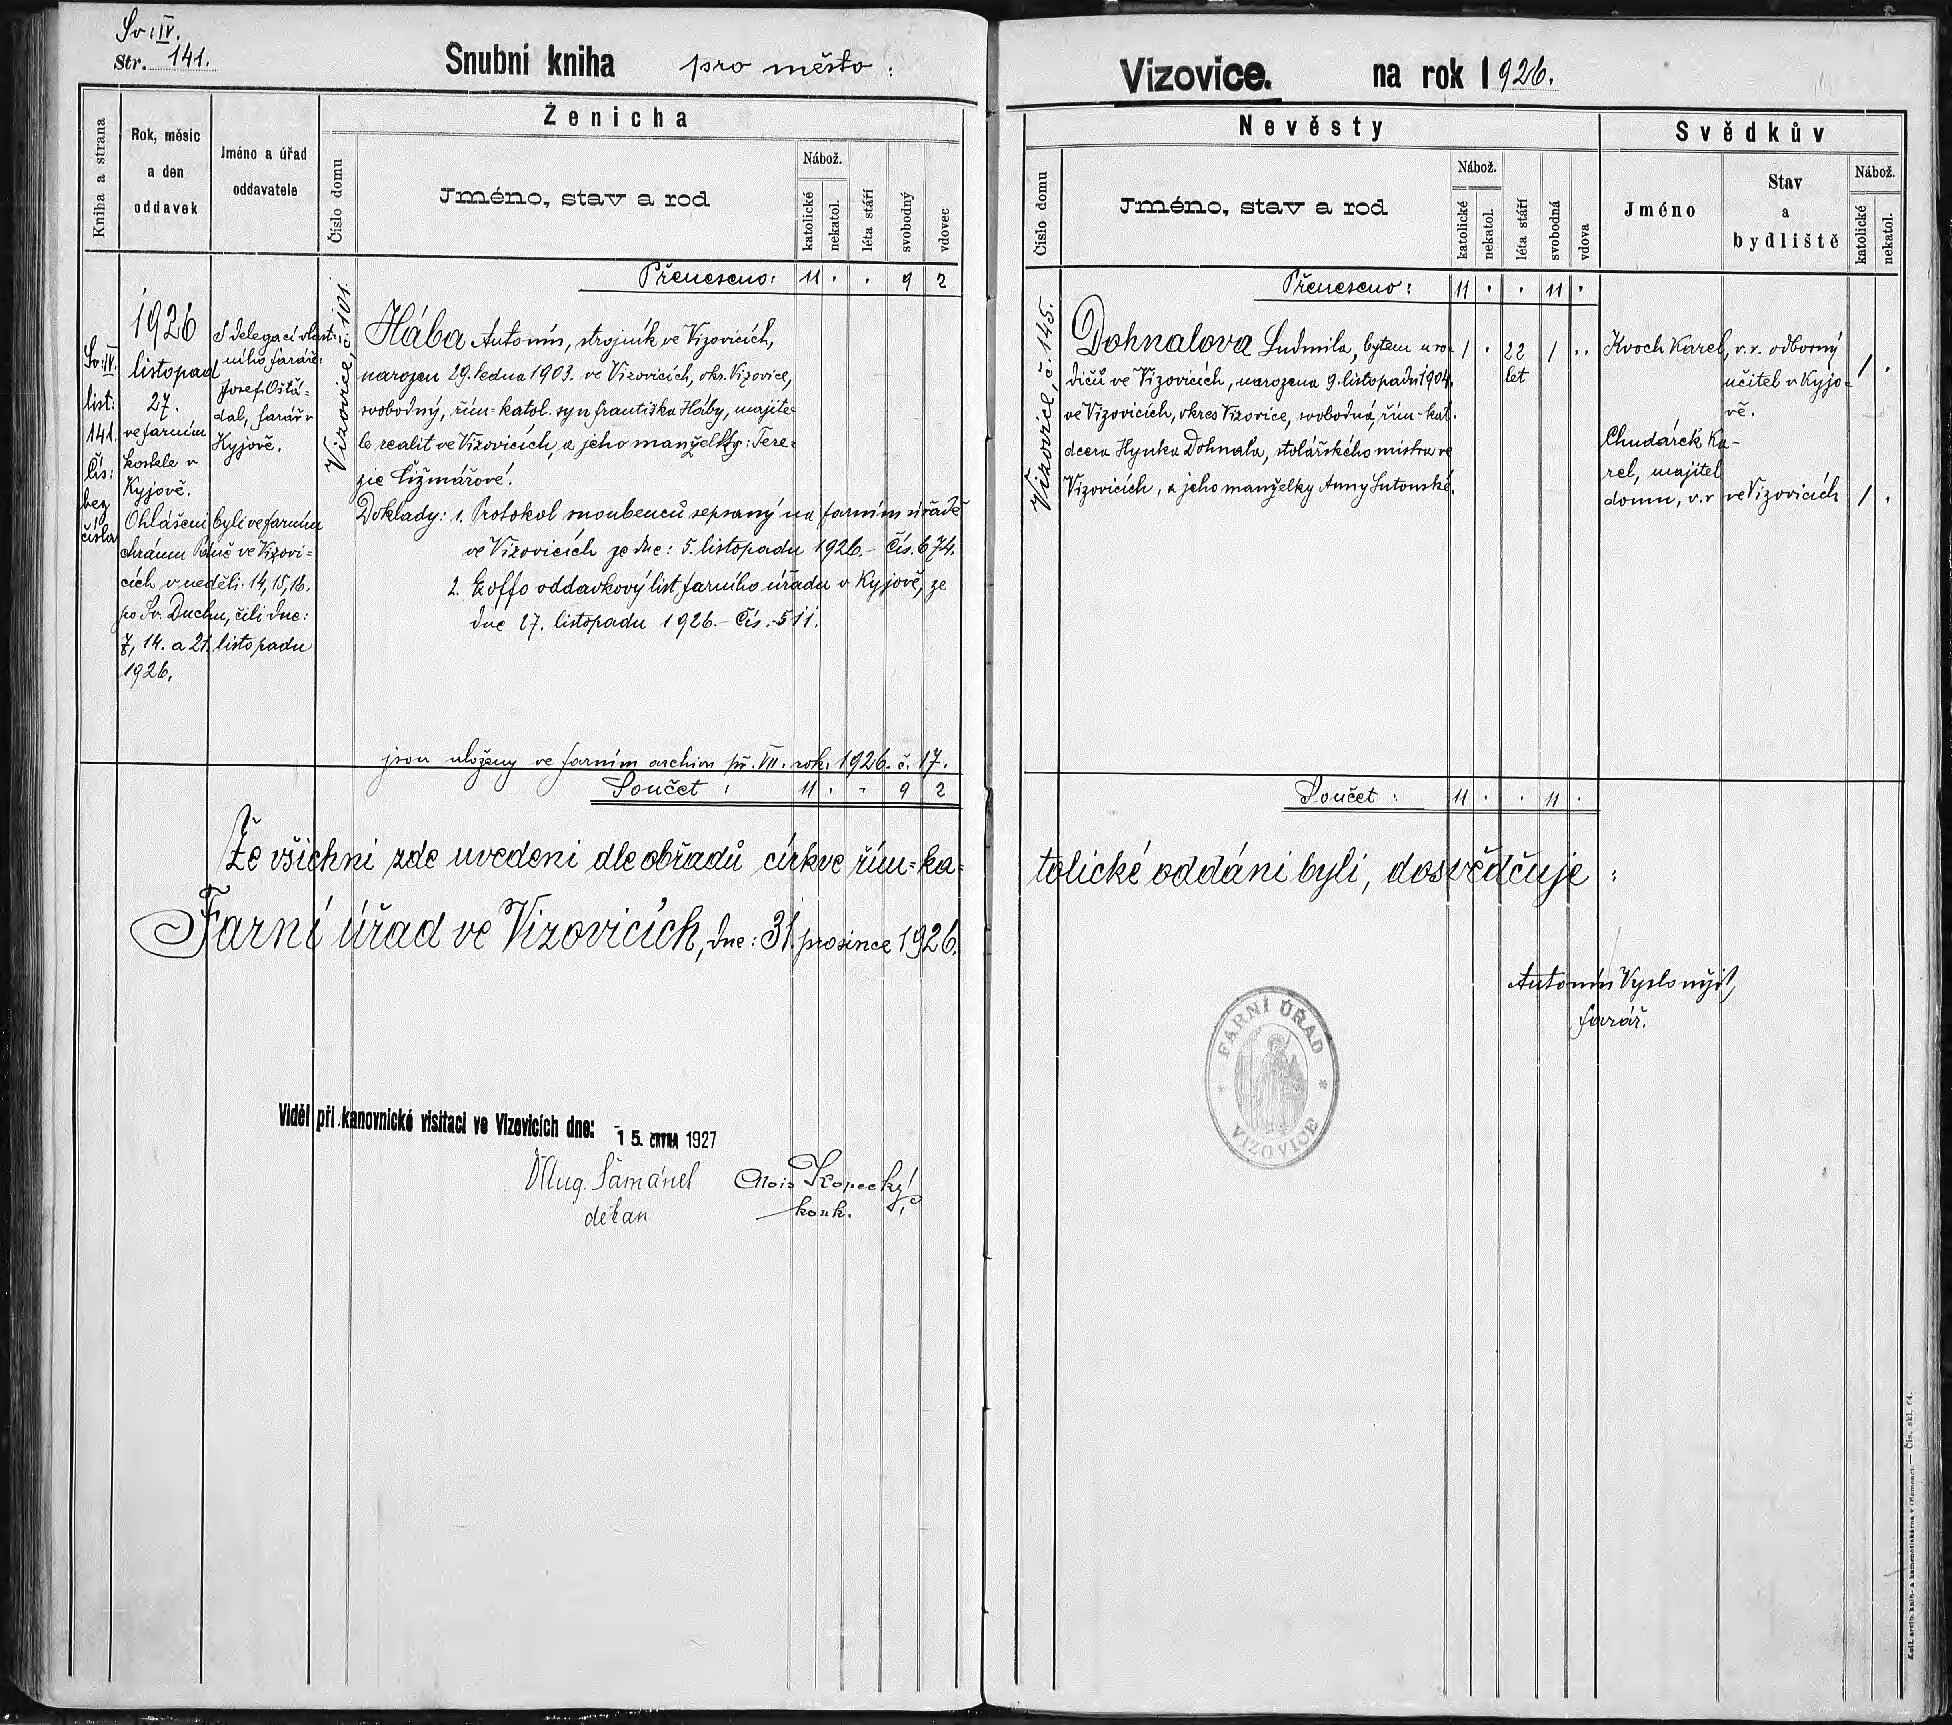 Sv: IV.
Str. 141.
Snubní kniha pro město:
Kniha a strana
Rok, měsíc
a den
oddavek
Jméno a úřad
oddavatele
Číslo domu
Ženicha
Jméno, stav a rod
Nábož.
katolické
nekatol.
léta stáří
svobodný
vdovec
Přeneseno: 11 . . 9 2
Sv: IV.
list:
141.
Čís:
bez
čísla
1926
listopad
27.
ve farním
kostele v
Kyjově.
Ohlášeni byli ve farním
chrámu Páně ve Vizovi=
cích v neděli: 14, 15, 16.
po Sv. Duchu, čili dne:
7, 14. a 21. listopadu
1926.
S delegací vlast=
ního faráře:
Josef Ošťá=
dal, farář v
Kyjově.
Vizovice, č. 101.
Hába Antonín, strojník ve Vizovicích,
narozen 29. ledna 1903. ve Vizovicích, okr. Vizovice,
svobodný, řím=katol. syn Františka Háby, majite=
le realit ve Vizovicích, a jeho manželky: Tere=
zie Čižmářové.
Doklady: 1. Protokol snoubenců sepsaný na farním úřadě
ve Vizovicích ze dne: 5. listopadu 1926.- Čís. 674.
2. Exoffo oddavkový list farního úřadu v Kyjově, ze
dne 27. listopadu 1926.- Čís. 511.
jsou uloženy ve farním archivu př. VII. rok. 1926. č. 17.
Součet: 11 . . 9 2
Že všichni zde uvedeni dle obřadů církve řím=ka=
Farní úřad ve Vizovicích, dne: 31. prosince 1926.
Viděl při kanovnické visitaci ve Vizovicích dne: 15. 1927
Aug. Šamánek
děkan
Alois Kopecký
konk.
Vizovice. na rok 1926.
Číslo domu
Nevěsty
Jméno, stav a rod
Nábož.
katolické
nekatol.
léta stáří
svobodná
vdova
Svědkův
Jméno
Stav
a
bydliště
Nábož.
katolické
nekatol.
Přeneseno: 11 . . 11 .
Vizovice, č. 145.
Dohnalova Ludmila, bytem u ro= 1 . 22 1 ..
dičů ve Vizovicích, narozena 9. listopadu 1904. let
ve Vizovicích, okres Vizovice, svobodná, řím=kat.
dcera Hynka Dohnala, stolářského mistra ve
Vizovicích, a jeho manželky Anny Sutorské.
Kvoch Karel, v.r. odborný
učitel v Kyjo= 1 .
vě.
Chudárek Ka-
rel, majitel
domu, v.r ve Vizovicích 1 .
Součet: 11 . . 11 .
tolické oddáni byli, dosvědčuje:
Antonín Vysloužil,
farář.
FARNÍ ÚŘAD
VIZOVICE